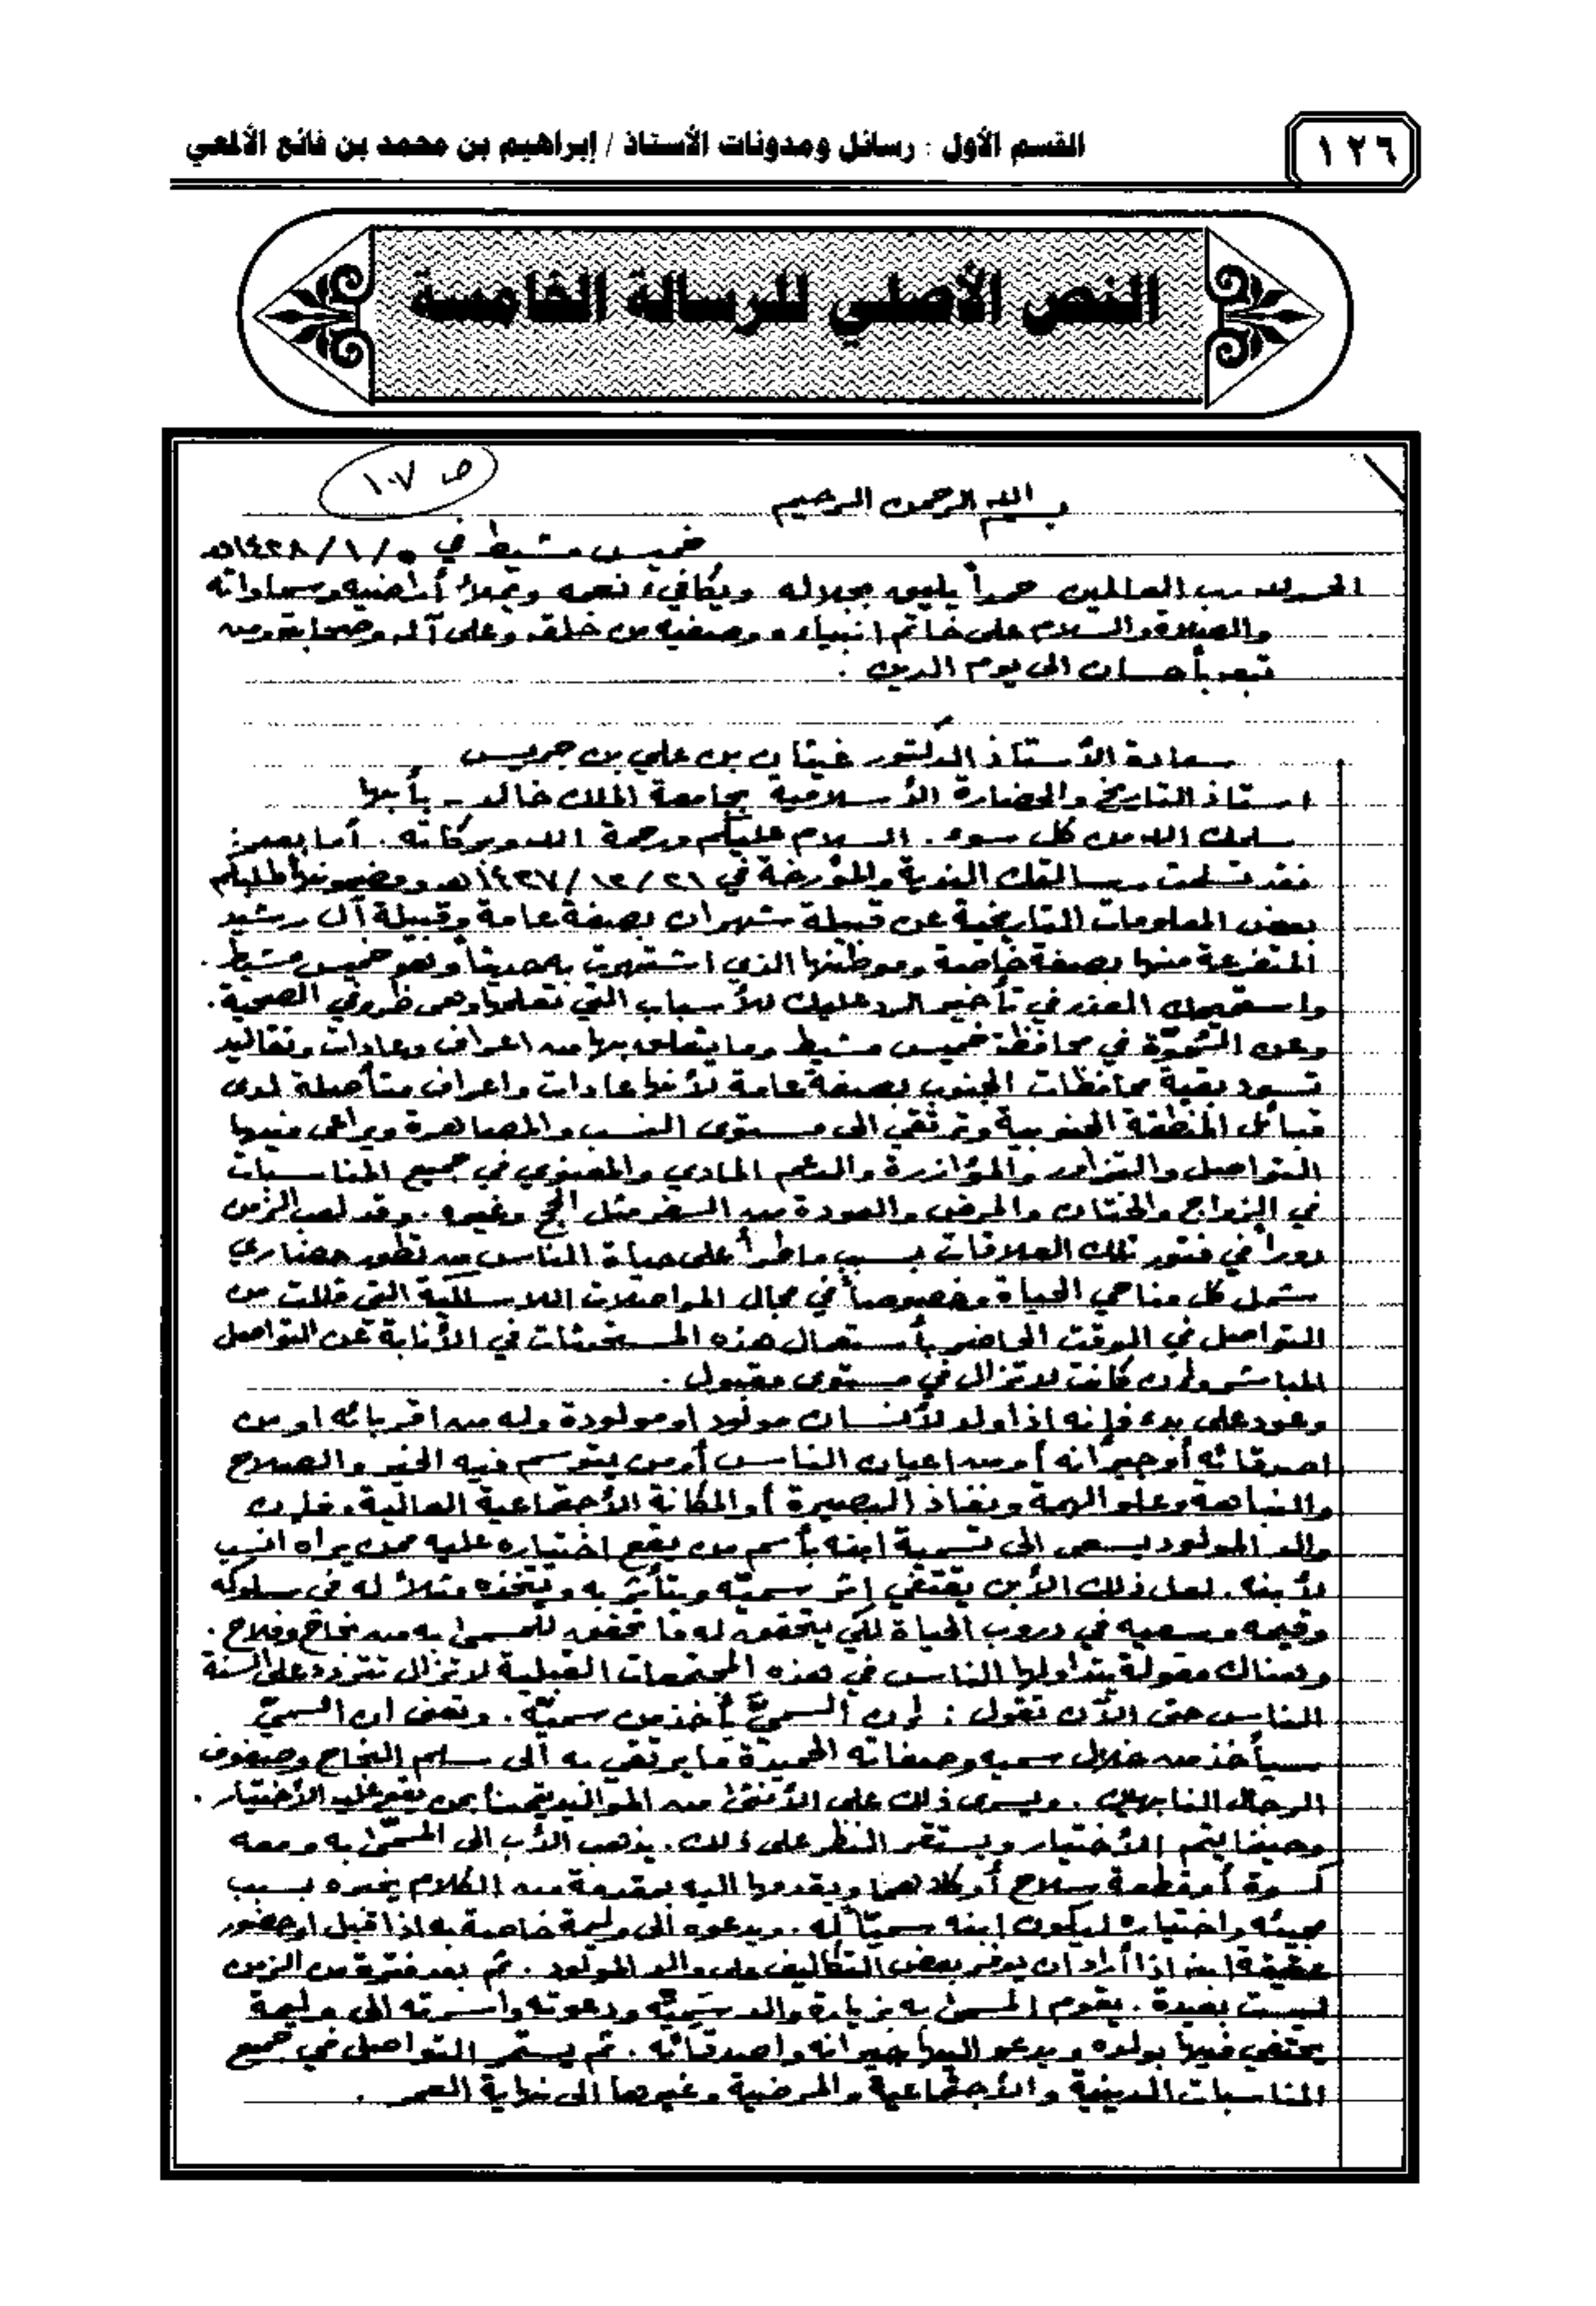 ١٢٦
القسم الأول : رسائل ومدونات الأستاذ / إبراهيم بن محمد بن فائع الألمعي
النص الأصلي للرسالة الخامسة
ص ١٠٧
بسم الله الرحمن الرحيم
خميس مشيط في ٥/١/١٤٢٨هـ
الحمد لله رب العالمين حمداً يليق بجلاله ويكافيء نعمه ويملأ أراضيه وسماواته
والصلاة والسلام على خاتم انبياءه وصفيه من خلقه وعلى آله وصحابته ومن
تبعه بأحسان الى يوم الدين .
سعادة الأستاذ الدكتور غيثان بن علي بن جريس
استاذ التاريخ والحضارة الأسلامية بجامعة الملك خالد - بأبها
سلمك الله من كل سوء . السلام عليكم ورحمة الله وبركاته . أما بعد
فقد تسلمت رسالتك الندية والمؤرخة في ٢١/١٢/١٤٢٧هـ ومضمونها طلبكم
بعض المعلومات التاريخية عن قبيلة شهران بصفة عامة وقبيلة آل رشيد
المتفرعة منها بصفة خاصة وموطنها الذي اشتهرت به حديثاً وهو خميس مشيط .
واستميحك العذر في تأخير الرد عليك للأسباب التي تعلمها وهي ظروفي الصحية .
وعن السُّموّة في محافظة خميس مشيط وما يتعلق بها من اعراف وعادات وتقاليد
تسود بقية محافظات الجنوب بصفة عامة لأنها عادات واعراف متأصلة لدى
قبائل المنطقة الجنوبية وترتقي الى مستوى النسب والمصاهرة ويراعى فيها
التواصل والتزاور والمؤازرة والدعم المادي والمعنوي في جميع المناسبات
في الزواج والختان والمرض والعودة من السفر مثل الحج وغيره . وقد لعب الزمن
دوراً في فتور تلك العلاقات بسبب ما طرأ على حياة الناس من تطور حضاري
شمل كل مناحي الحياة وخصوصاً في مجال المواصلات اللاسلكية التي قللت من
التواصل في الوقت الحاضر بأستعمال هذه المستحدثات في الأنابة عن التواصل
المباشر وإن كانت لا تزال في مستوى مقبول .
وعود على بدء فإنه اذا ولد للأنسان مولود او مولودة وله من اقربائه او من
اصدقائه أو جيرانه أو من اعيان الناس أو من يتوسم فيه الخير والصلاح
والنباهة وعلو الهمة ونفاذ البصيرة أو المكانة الأجتماعية العالية . فإن
والد المولود يسعى الى تسمية ابنه بأسم من يقع اختياره عليه ممن يراه انسب
لأبنه . لعل ذلك الأبن يقتفي إثر سميّه ويتأثر به ويتخذه مثلاً له في سلوكه
وقيمه وسعيه في دروب الحياة لكي يتحقق له ما تحقق للمسمى به من نجاح وفلاح .
وهناك مقولة يتداولها الناس في هذه المجتمعات القبلية لا تزال تتردد على السنة
الناس حتى الآن تقول : إن السميّ أخذ من سميّه . وتعني ان السميّ
سيأخذ من خلال سميه وصفاته الحميدة ما يرتقي به الى سلم النجاح وصفوف
الرجال النابهين . ويسري ذلك على الأنثى من المواليد تيمناً بمن يقع عليه الأختيار .
وحينما يتم الأختيار ويستقر النظر على ذلك . يذهب الأب الى المسمّى به ومعه
كسوة أو قطعة سلاح أو كلاهما ويقدمها اليه بمقدمة من الكلام يخبره بسبب
مجيئه واختياره ليكون ابنه سميّاً له . ويدعوه الى وليمة خاصة به اذا قبل او حضور
عقيقة ابنه اذا أراد ان يوفر بعض التكاليف على والد المولود . ثم بعد فترة من الزمن
ليست بعيدة . يقوم المسمى به بزيارة والد سميّه ودعوته واسرته الى وليمة
يحتفي فيها بولده ويدعو اليها جيرانه واصدقائه . ثم يستمر التواصل في جميع
المناسبات الدينية والأجتماعية والمرضية وغيرها الى نهاية العمر .